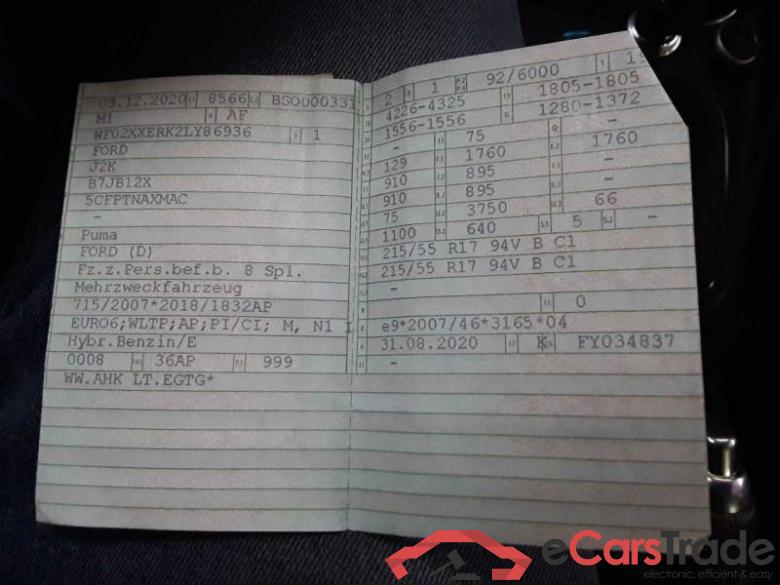 03.12.2020 8566 BSO000331
M1 AF
WF02XXERK2LY86936 1
FORD
J2K
B7JB12X
5CFPTNAXMAC
-
Puma
FORD (D)
Fz.z.Pers.bef.b. 8 Spl.
Mehrzweckfahrzeug
715/2007*2018/1832AP
EURO6;WLTP;AP;PI/CI; M, N1 I
Hybr.Benzin/E
0008 36AP 999
WW.AHK LT.EGTG*
2 1 92/6000
4226-4325 1805-1805
1556-1556 1280-1372
- 75 -
129 1760 1760
910 895 -
910 895 -
75 3750 66
1100 640 5 -
215/55 R17 94V B C1
215/55 R17 94V B C1
-
0
e9*2007/46*3165*04
31.08.2020 K FY034837
-
eCarsTrade
electronic, efficient & easy